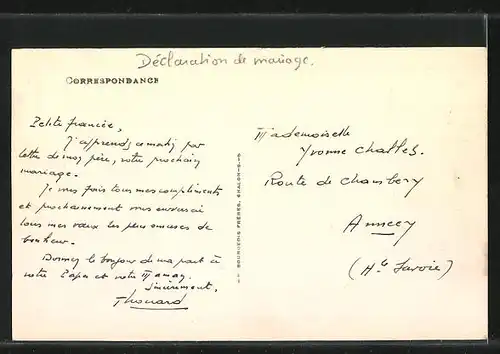 Déclaration de mariage.
CORRESPONDANCE
Petite fiancée,
J'apprends ce matin par
lettre de mon père, votre prochain
mariage.
Je vous fais tous mes compliments
et prochainement vous enverrai
tous mes vœux les plus sincères de
bonheur.
Donnez le bonjour de ma part à
votre Papa et votre Maman.
Sincèrement,
Thouard
BOURGEOIS FRÈRES,
Mademoiselle
Yvonne Challes.
Route de Chambéry
Annecy
(Hte Savoie)